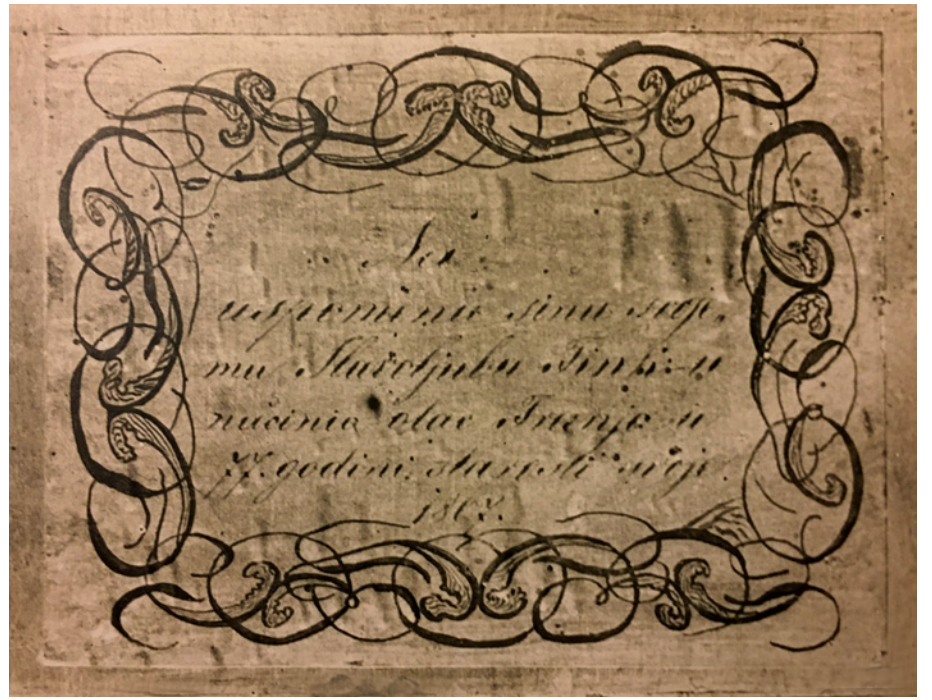 Na
uspominu sinu svoje,
mu Slavoljubu
načinio otac Franjo u
77. godini starosti svoje
186